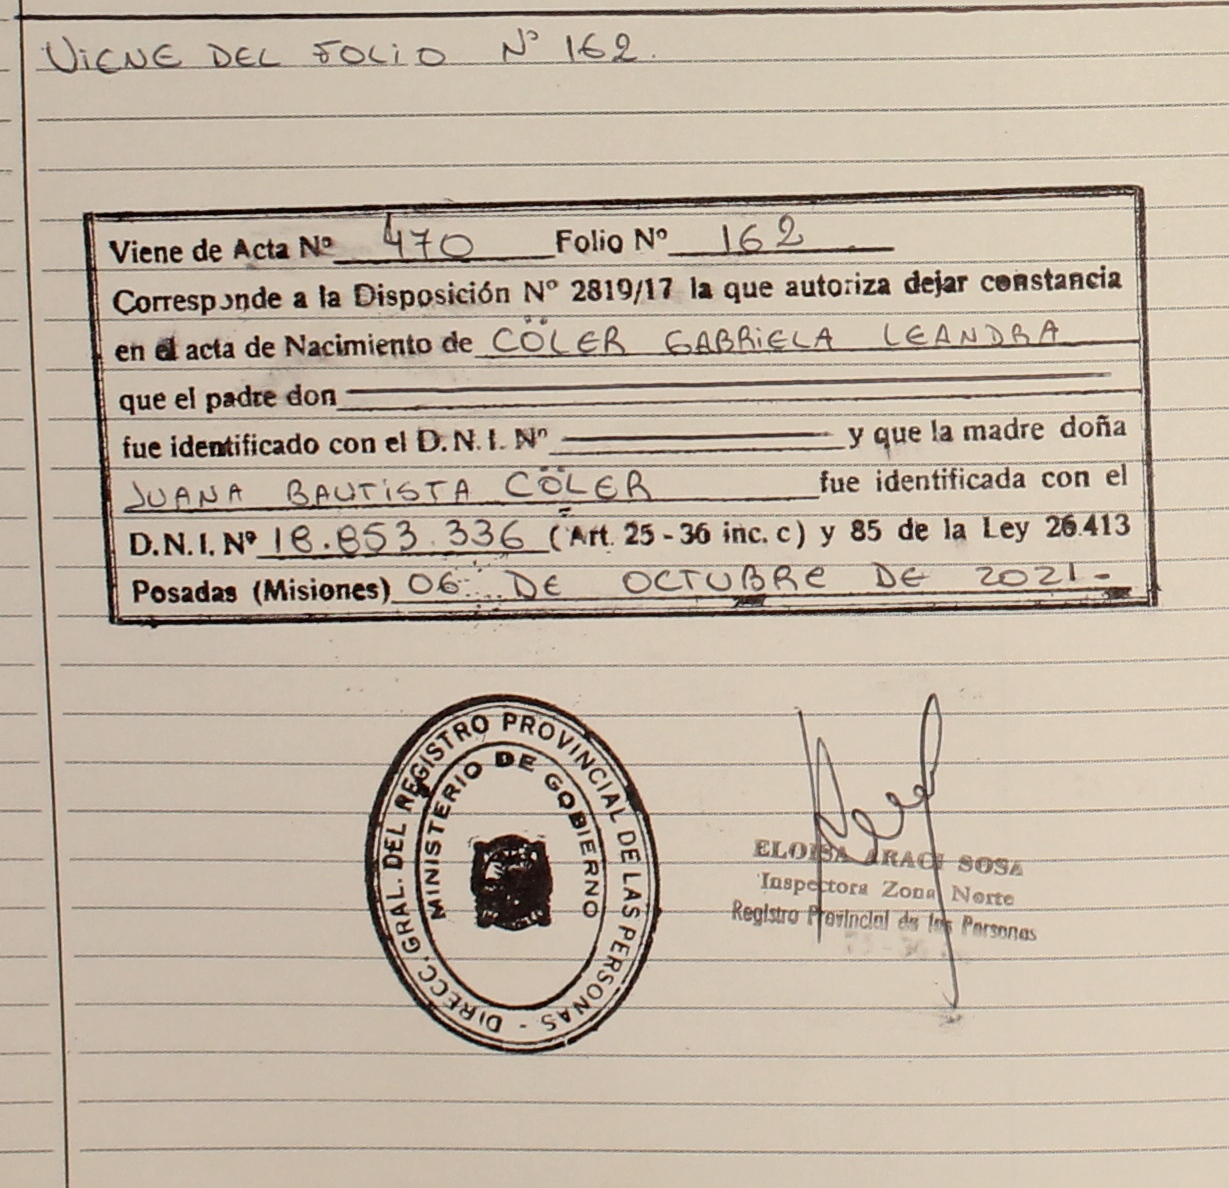 VIENE DEL FOLIO N° 162.
Viene de Acta Nº 470 Folio Nº 162
Corresponde a la Disposición Nº 2819/17 la que autoriza dejar constancia
en el acta de Nacimiento de CÖLER GABRIELA LEANDRA
que el padre don
fue identificado con el D.N.I. Nº y que la madre doña
JUANA BAUTISTA CÖLER fue identificada con el
D.N.I. Nº 18.853.336 (Art. 25 - 36 inc. c) y 85 de la Ley 26.413
Posadas (Misiones) 06 DE OCTUBRE DE 2021-
DIRECC. GRAL. DEL REGISTRO PROVINCIAL DE LAS PERSONAS -
MINISTERIO DE GOBIERNO
ELOISA ARACI SOSA
Inspectora Zona Norte
Registro Provincial de las Personas